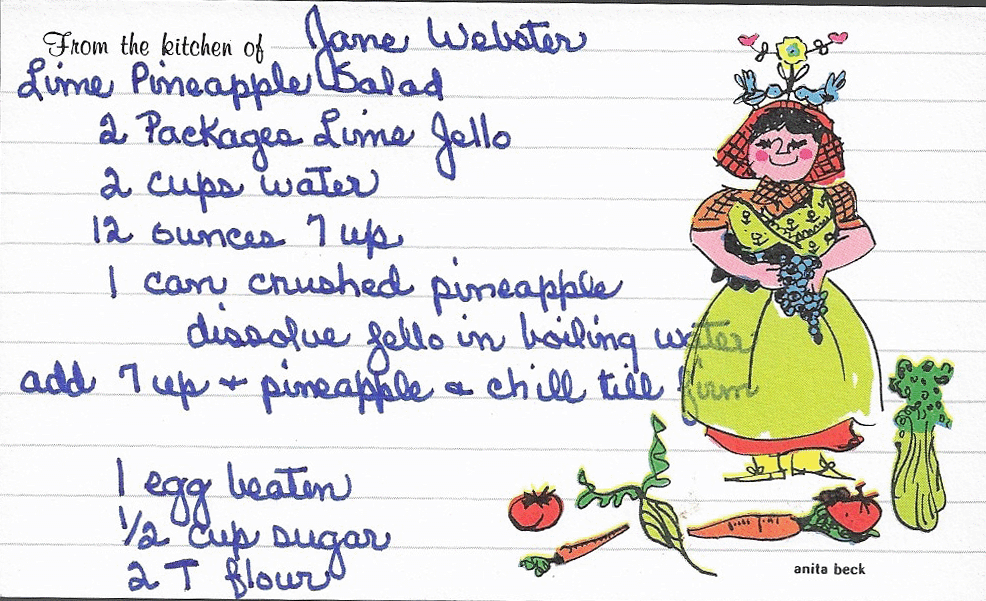 From the kitchen of Jane Webster
Lime Pineapple Salad
2 Packages Lime Jello
2 cups water
12 ounces 7 up
1 can crushed pineapple
dissolve jello in boiling water
add 7 up + pineapple & chill till firm
1 egg beaten
1/2 cup sugar
2 T flour
anita beck